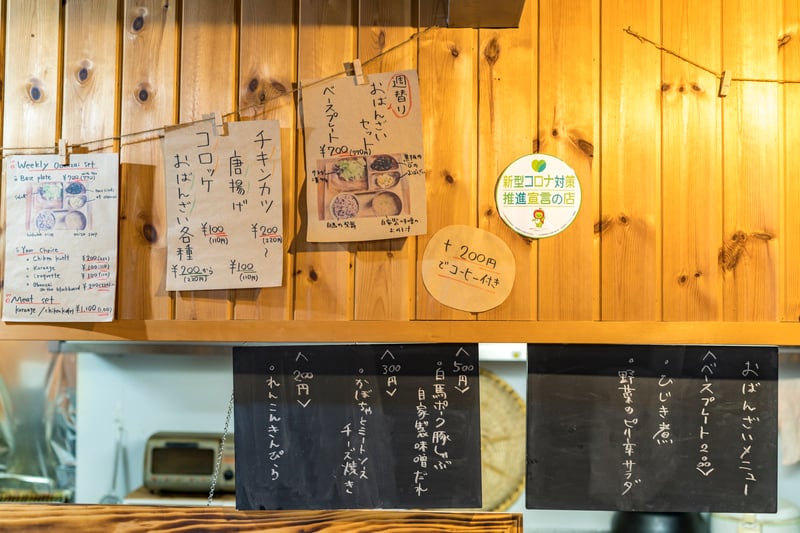 Weekly Obanzai set
Base plate ¥700 (770)
miso soup
Your Choice
・Chiken katt ¥200
・Karaage ¥100
・Croquette ¥100
・Obanzai on the blackboard ¥200
Meat set
karaage / chiken katt ¥1,100
チキンカツ ¥200〜
(220円)
唐揚げ ¥100
(110円)
コロッケ ¥100
(110円)
おばんざい各種 ¥200から
(220円)
週替り
おばんざいセット
ベースプレート
¥700 (770円)
+200円
でコーヒー付き
新型コロナ対策
推進宣言の店
<500円>
・白馬ポーク豚しゃぶ
自家製味噌だれ
<300円>
・かぼちゃとミートソース
チーズ焼き
<200円>
・れんこんきんぴら
おばんざいメニュー
<ベースプレート200>
・ひじき煮
・野菜のピリ辛サラダ